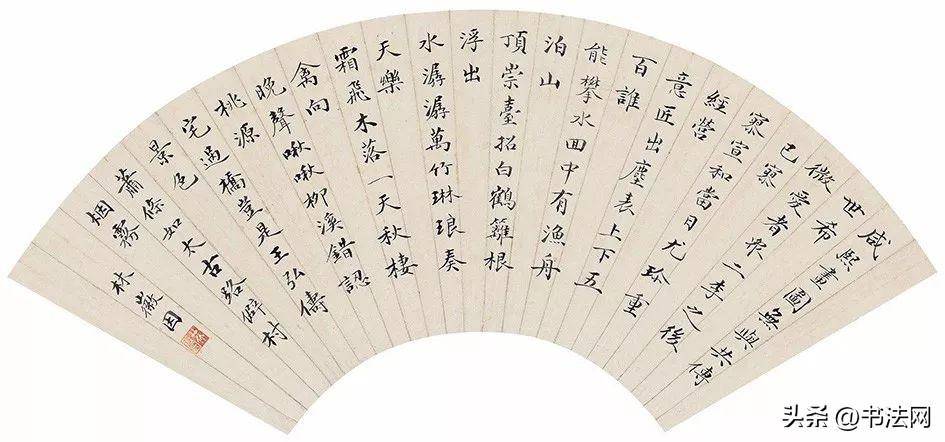 咸熙畫圖無與共傳
世希
微愛者眾二李之後
已寥
寥宣和當日尤珍重
經營
意匠出塵表上下五
百誰
能攀水回中有漁舟
泊山
頂崇臺招白鶴籬根
浮出
水潺潺萬竹琳琅奏
天樂
霜飛木落一天秋棲
禽向
晚聲啾啾柳溪錯認
桃源
宅過橋豈是王弘儔
景色
蕭條如太古路僻村
烟霧
林徽因
头条 @书法网